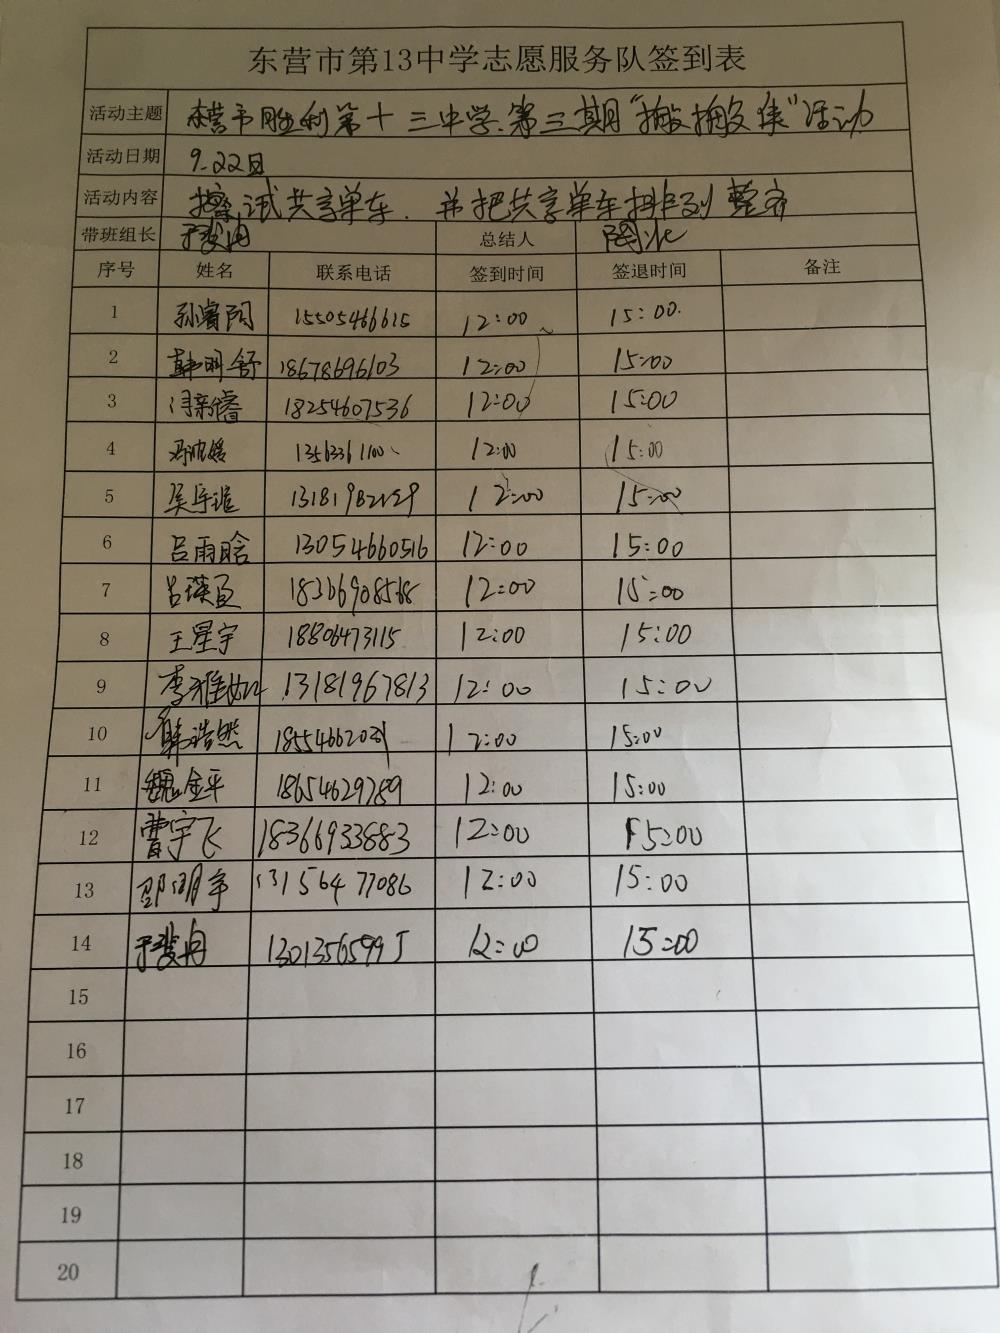 东营市第13中学志愿服务队签到表
活动主题 东营市胜利第十三中学.第三期“搬搬侠”活动
活动日期 9.22日
活动内容 擦试共享单车.并把共享单车排列整齐
带班组长 总结人
序号 姓名 联系电话 签到时间 签退时间 备注
1 孙睿阳 15505466615 12:00 15:00.
2 韩明舒 18678696103 12:00 15:00
3 闫新睿 18254607536 12:00 15:00
4 12:00 15:00
5 12:00 15:00
6 吕雨晗 13054660516 12:00 15:00
7 吕瑛 12:00 15:00
8 王星宇 18806473115 12:00 15:00
9 李雅如 13181967813 12:00 15:00
10 韩浩然 12:00 15:00
11 魏金平 18654629789 12:00 15:00
12 曹宇飞 18366933883 12:00 15:00
13 邵明宇 12:00 15:00
14 12:00 15:00
15
16
17
18
19
20